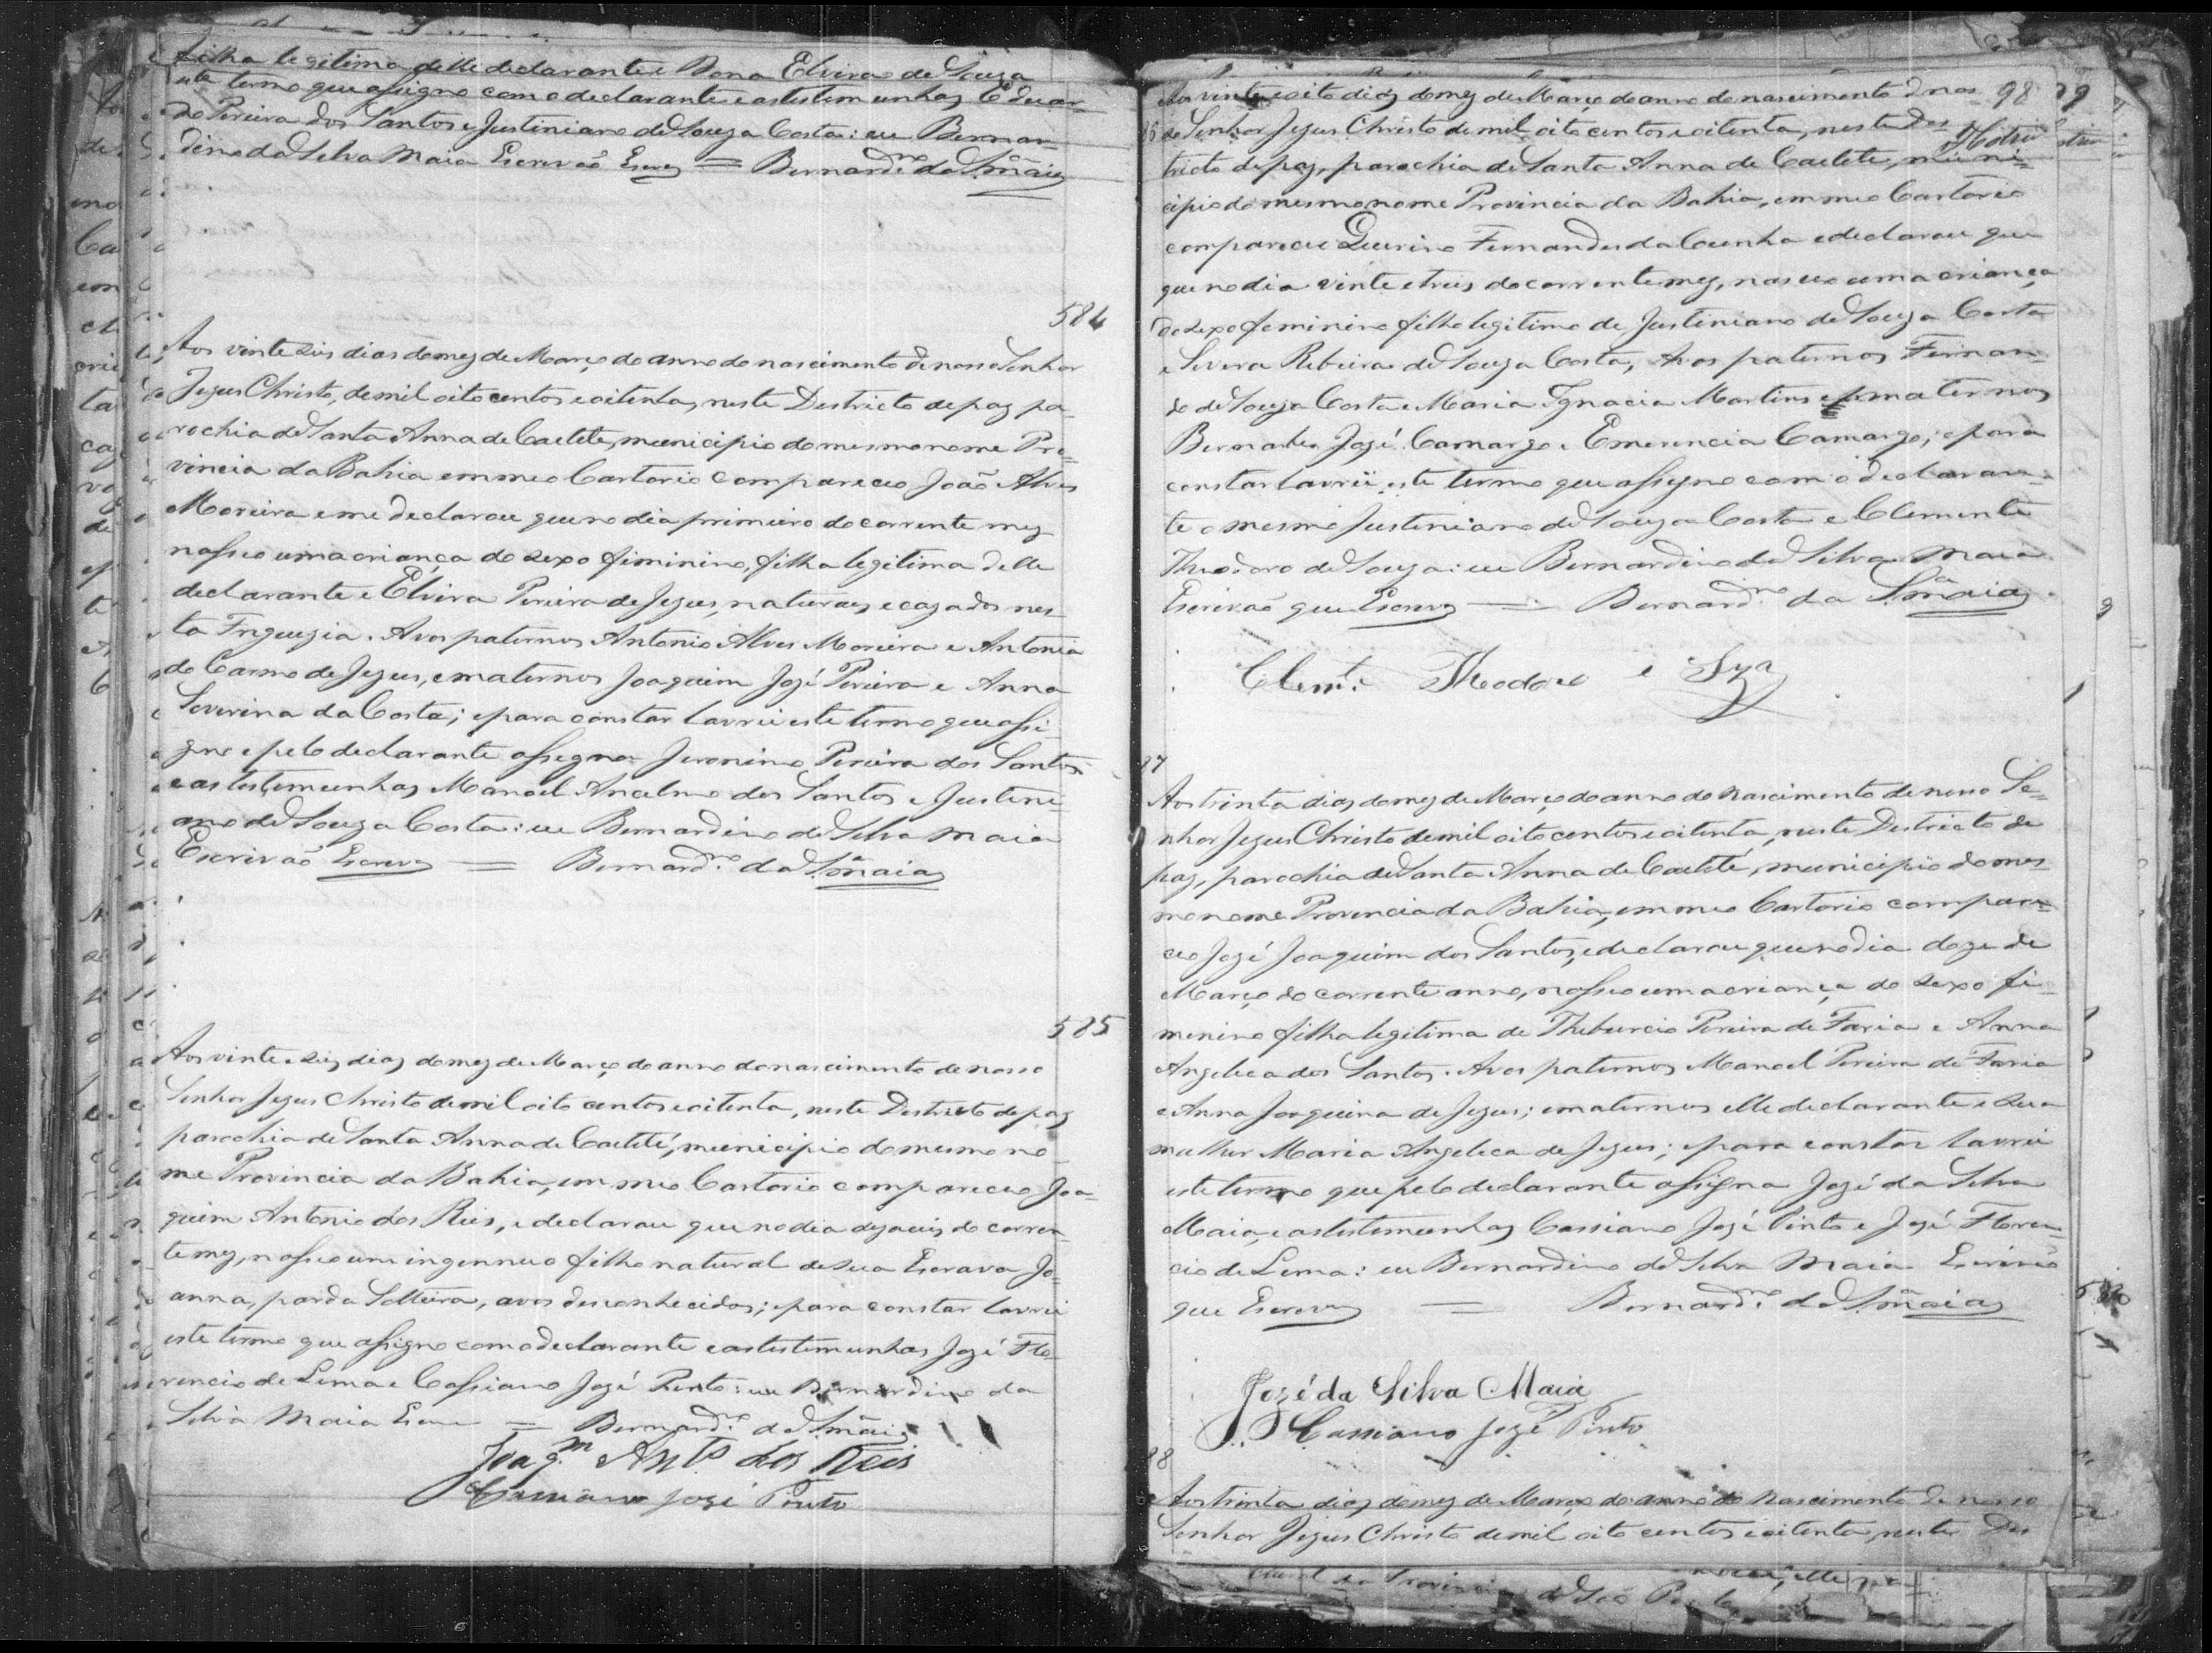 filha legitima delle declarante e Dona Elvira de Souza
este termo que assigno com o declarante e as testemunhas Eduar-
do Pereira dos Santos e Justiniano de Souza Costa: eu Bernar-
dino da Silva Maia Escrevaõ Escrevy = Bernard.no da S.a Maia
584
Aos vinte seis dias do mez de Março do anno do nascimento de nosso Senhor
Jezus Christo, de mil oito centos e oitenta, neste Destricto de paz pa-
rochia de Santa Anna de Caetete, municipio do mesmo nome Pro-
vincia da Bahia em meo Cartorio compareceo João Alves
Moreira e me declarou que no dia primeiro do corrente mez
nasseo uma criança do sexo fiminino, filha legitima delle
declarante e Elvira Pereira de Jezus, naturaes e cazados nes-
ta Freguezia. Avos paternos Antonio Alves Moreira e Antonia
do Carmo de Jezus, e maternos Joaquim José Pereira e Anna
Severina da Costa; e para constar lavrei este termo que assi-
gno e pelo declarante assigna Jeronimo Pereira dos Santos
e as testemunhas Manoel Ancelmo dos Santos e Justini-
ano de Souza Costa: eu Bernardino da Silva Maia
Escrivaõ Escrevy = Bernard.no da S.a Maia
585
Aos vinte e seis dias do mez de Março do anno do nascimento de nosso
Senhor Jezus Christo de mil oito centos e oitenta, neste Destricto de paz
parochia de Santa Anna de Caetité, municipio do mesmo no-
me Provincia da Bahia, em meo Cartorio compareceo Joa-
quim Antonio dos Reis, e declarou que no dia dezaceis do corren-
te mez, nasseo um ingennuo filho natural de sua Escrava Jo-
anna, parda Solteira, avos desconhecidos; e para constar lavrei
este termo que assigno com o declarante e as testemunhas José Flo-
rencio de Lima e Cassiano José Pinto: eu Bernardino da
Silva Maia Escre = Bernard.no da S.a Maia
Joaq.m Ant.o dos Reis
Cassiano José Pinto
98 99
Aos vinte e oito dias do mez de Março do anno do nascimento d nos-
86 so Senhor Jezus Christo de mil oito centos e oitenta, neste Des-
tricto de paz, parochia de Santa Anna de Caetete, muni-
cipio do mesmo nome Provincia da Bahia, em meo Cartorio
compareceu Querino Fernandes da Cunha e declarou que
que no dia vinte e treis do corrente mez, nasceo uma criança
do sexo feminino filha legitima de Justiniano de Souza Costa
e Severa Ribeira de Souza Costa, Avos paternos Fernan-
do de Souza Costa e Maria Ignacia Martins e maternos
Bernardes José Camargo e Emerencia Camargo; e para
constar lavrei este termo que assigno com o declaran-
te o mesmo Justiniano de Souza Costa e Clemente
Theodoro de Souza: eu Bernardino da Silva Maia
Escrivaõ que Escrevy = Bernard.no da S.a Maia
Clem.te Theodoro e Sza
87
Aos trinta dias do mez de Março do anno do Nascimento de nosso Se-
nhor Jezus Christo de mil oito centos e oitenta, neste Destricto de
paz, parochia de Santa Anna de Caetité, municipio do mes-
mo nome Provincia da Bahia, em meo Cartorio compare-
ceo José Joaquim dos Santos, e declarou que no dia doze de
Março do corrente anno, nasseo uma criança do sexo fi-
minino filha legitima de Theburcio Pereira de Faria e Anna
Angelica dos Santos. Avos paternos Manoel Pereira de Faria
e Anna Joaquina de Jezus; e maternos elle declarante e sua
mulher Maria Angelica de Jezus; e para constar lavrei
este termo que pelo declarante assigna José da Silva
Maia, e as testemunhas Cassiano José Pinto e José Floren-
cio de Lima: eu Bernardino da Silva Maia Escrivaõ
que Escrevy = Bernard.no da S.a Maia
José da Silva Maia
Cassiano José Pinto
88
Aos trinta dias do mez de Março do anno do Nascimento de nosso
Senhor Jezus Christo de mil oito centos e oitenta, neste Des